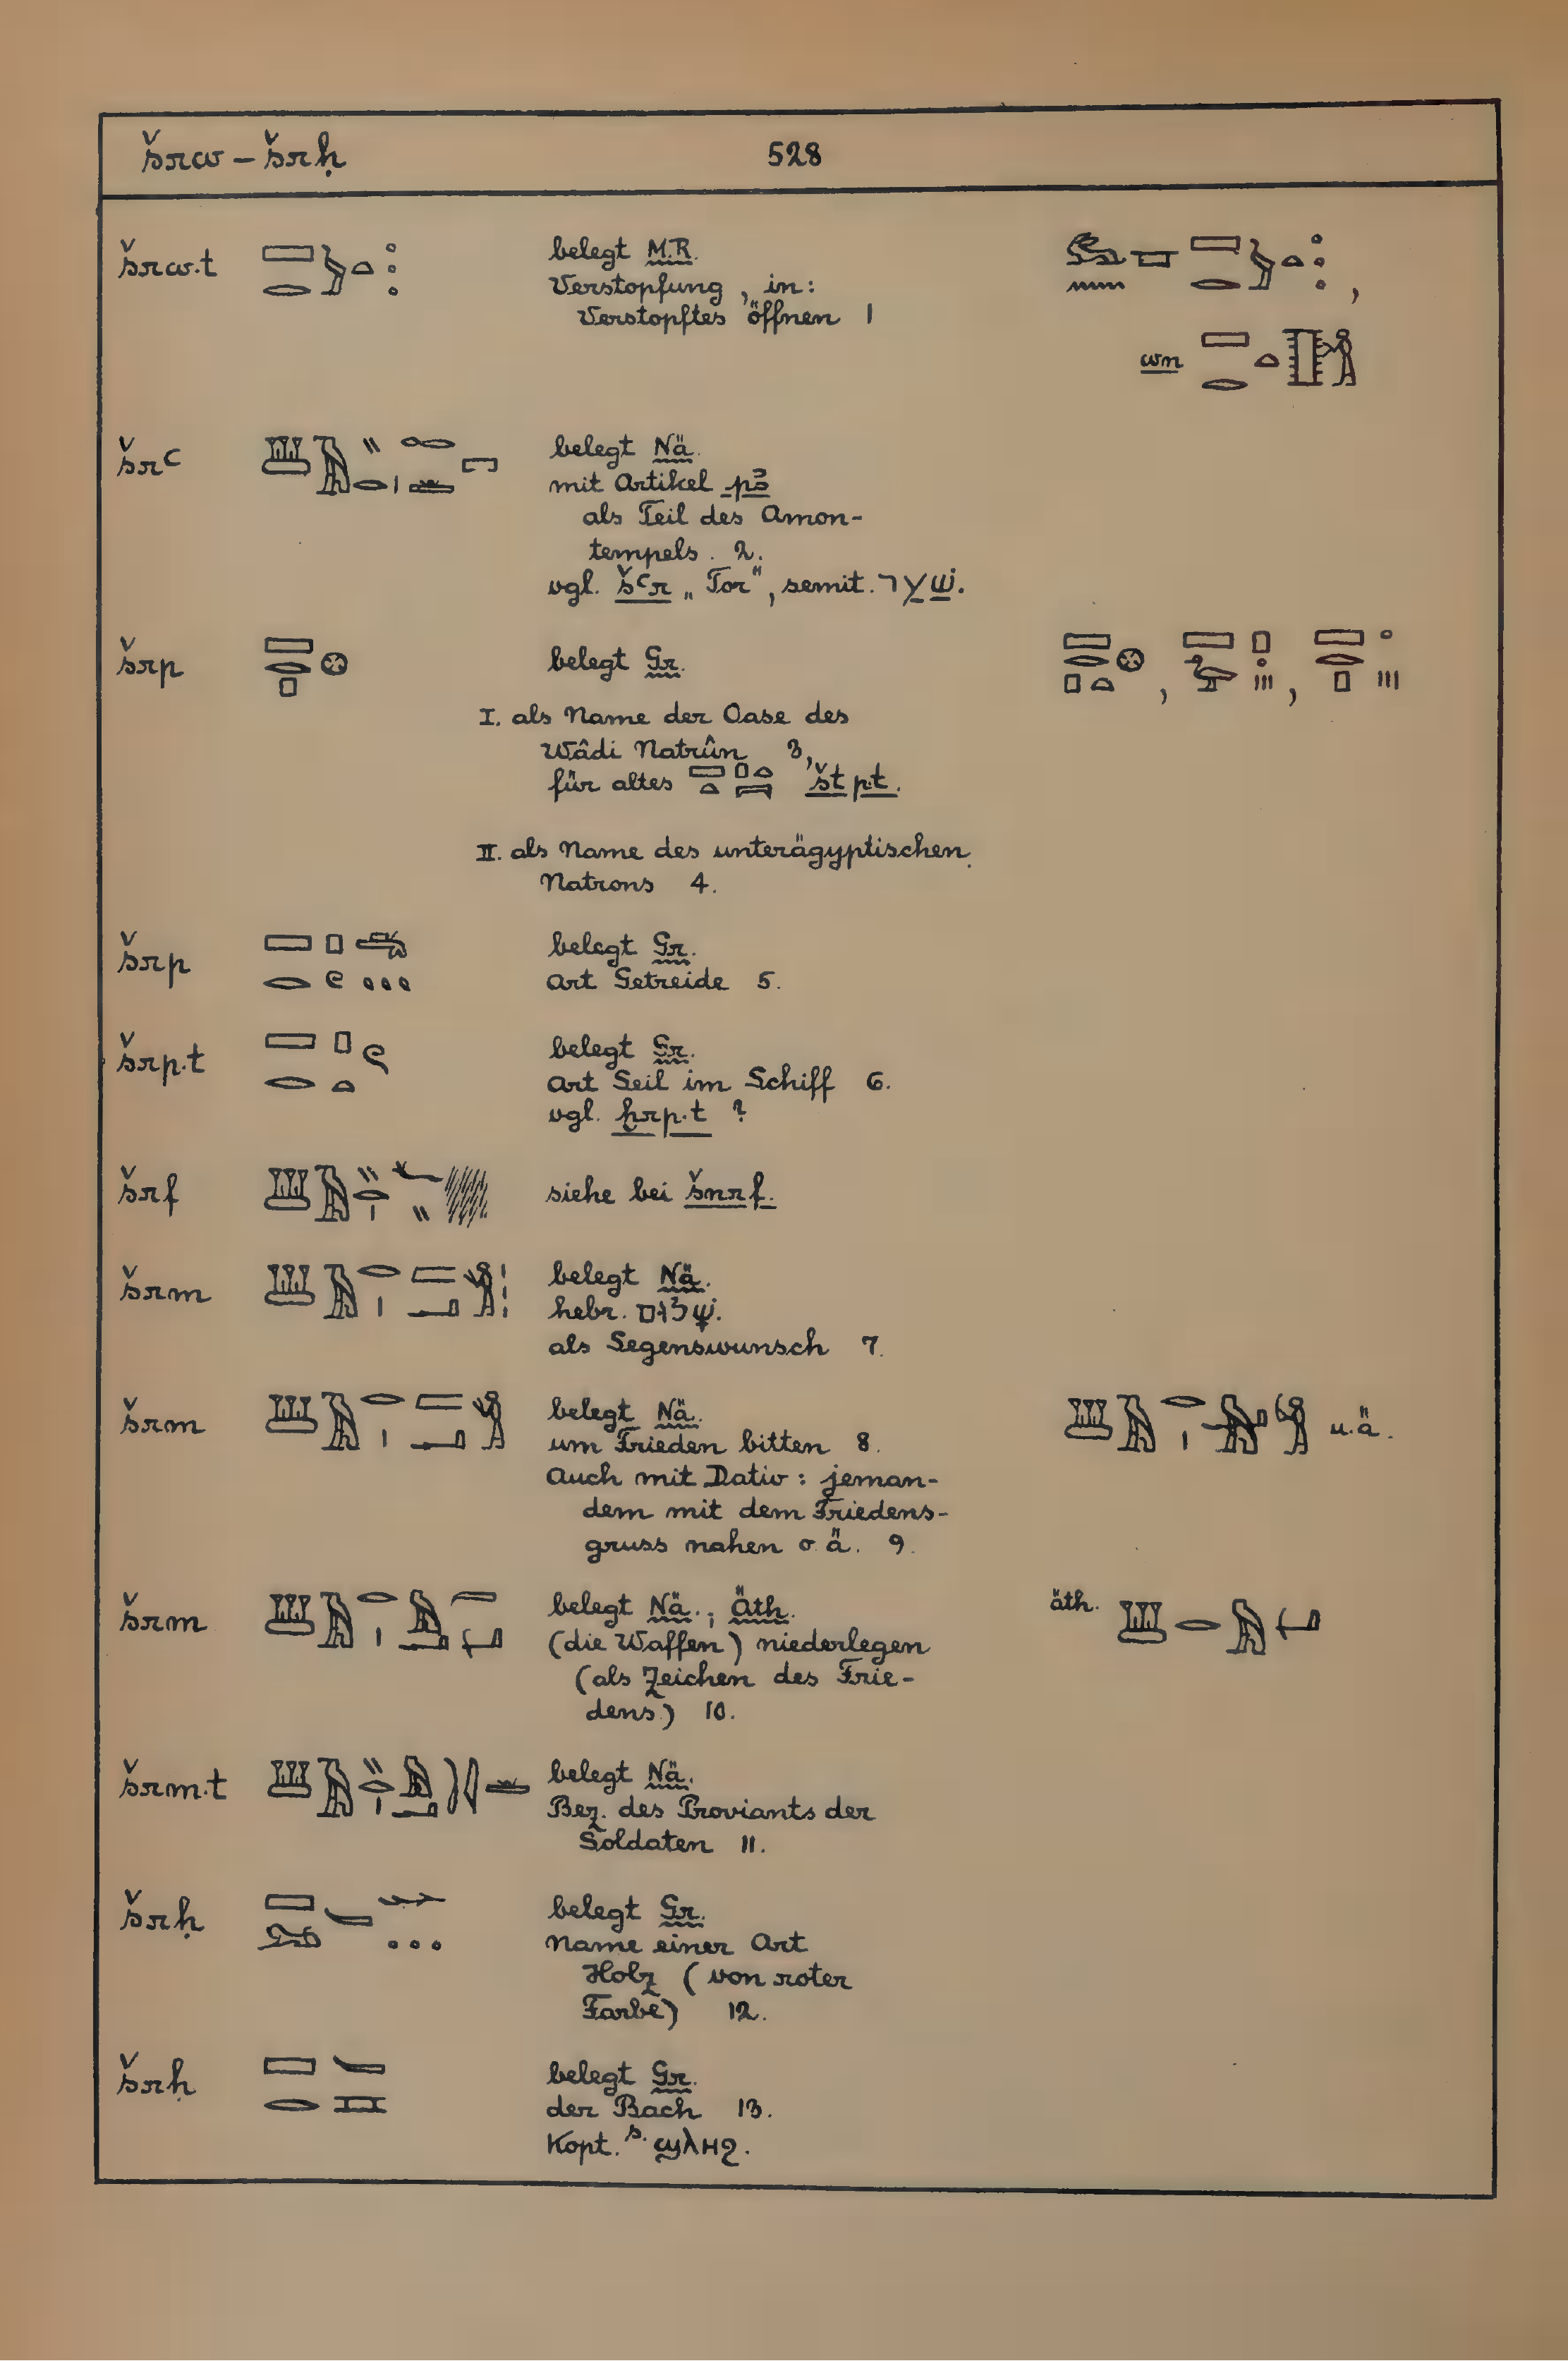 šrw – šrḥ 528
šrw.t belegt M.R.
Verstopfung, in:
Verstopftes öffnen 1
wn
šrꜥ belegt Nä.
mit Artikel pꜣ
als Teil des Amon-
tempels. 2.
vgl. šꜥr „Tor", semit. שׁער.
šrp belegt Gr.
I. als Name der Oase des
Wâdi Natrûn 3,
für altes štp.t.
II. als Name des unterägyptischen
Natrons 4.
šrp belegt Gr.
Art Getreide 5.
šrp.t belegt Gr.
Art Seil im Schiff 6.
vgl. ẖrp.t ?
šrf siehe bei šnrf.
šrm belegt Nä.
hebr. שָׁלוֹם.
als Segenswunsch 7.
šrm belegt Nä.
um Frieden bitten 8.
Auch mit Dativ: jeman-
dem mit dem Friedens-
gruss nahen o.ä. 9.
u.ä.
šrm belegt Nä.; Äth.
(die Waffen) niederlegen
(als Zeichen des Frie-
dens) 10.
äth.
šrm.t belegt Nä.
Bez. des Proviants der
Soldaten 11.
šrḥ belegt Gr.
Name einer Art
Holz (von roter
Farbe) 12.
šrḥ belegt Gr.
der Bach 13.
Kopt. s. ϣλⲏϩ.